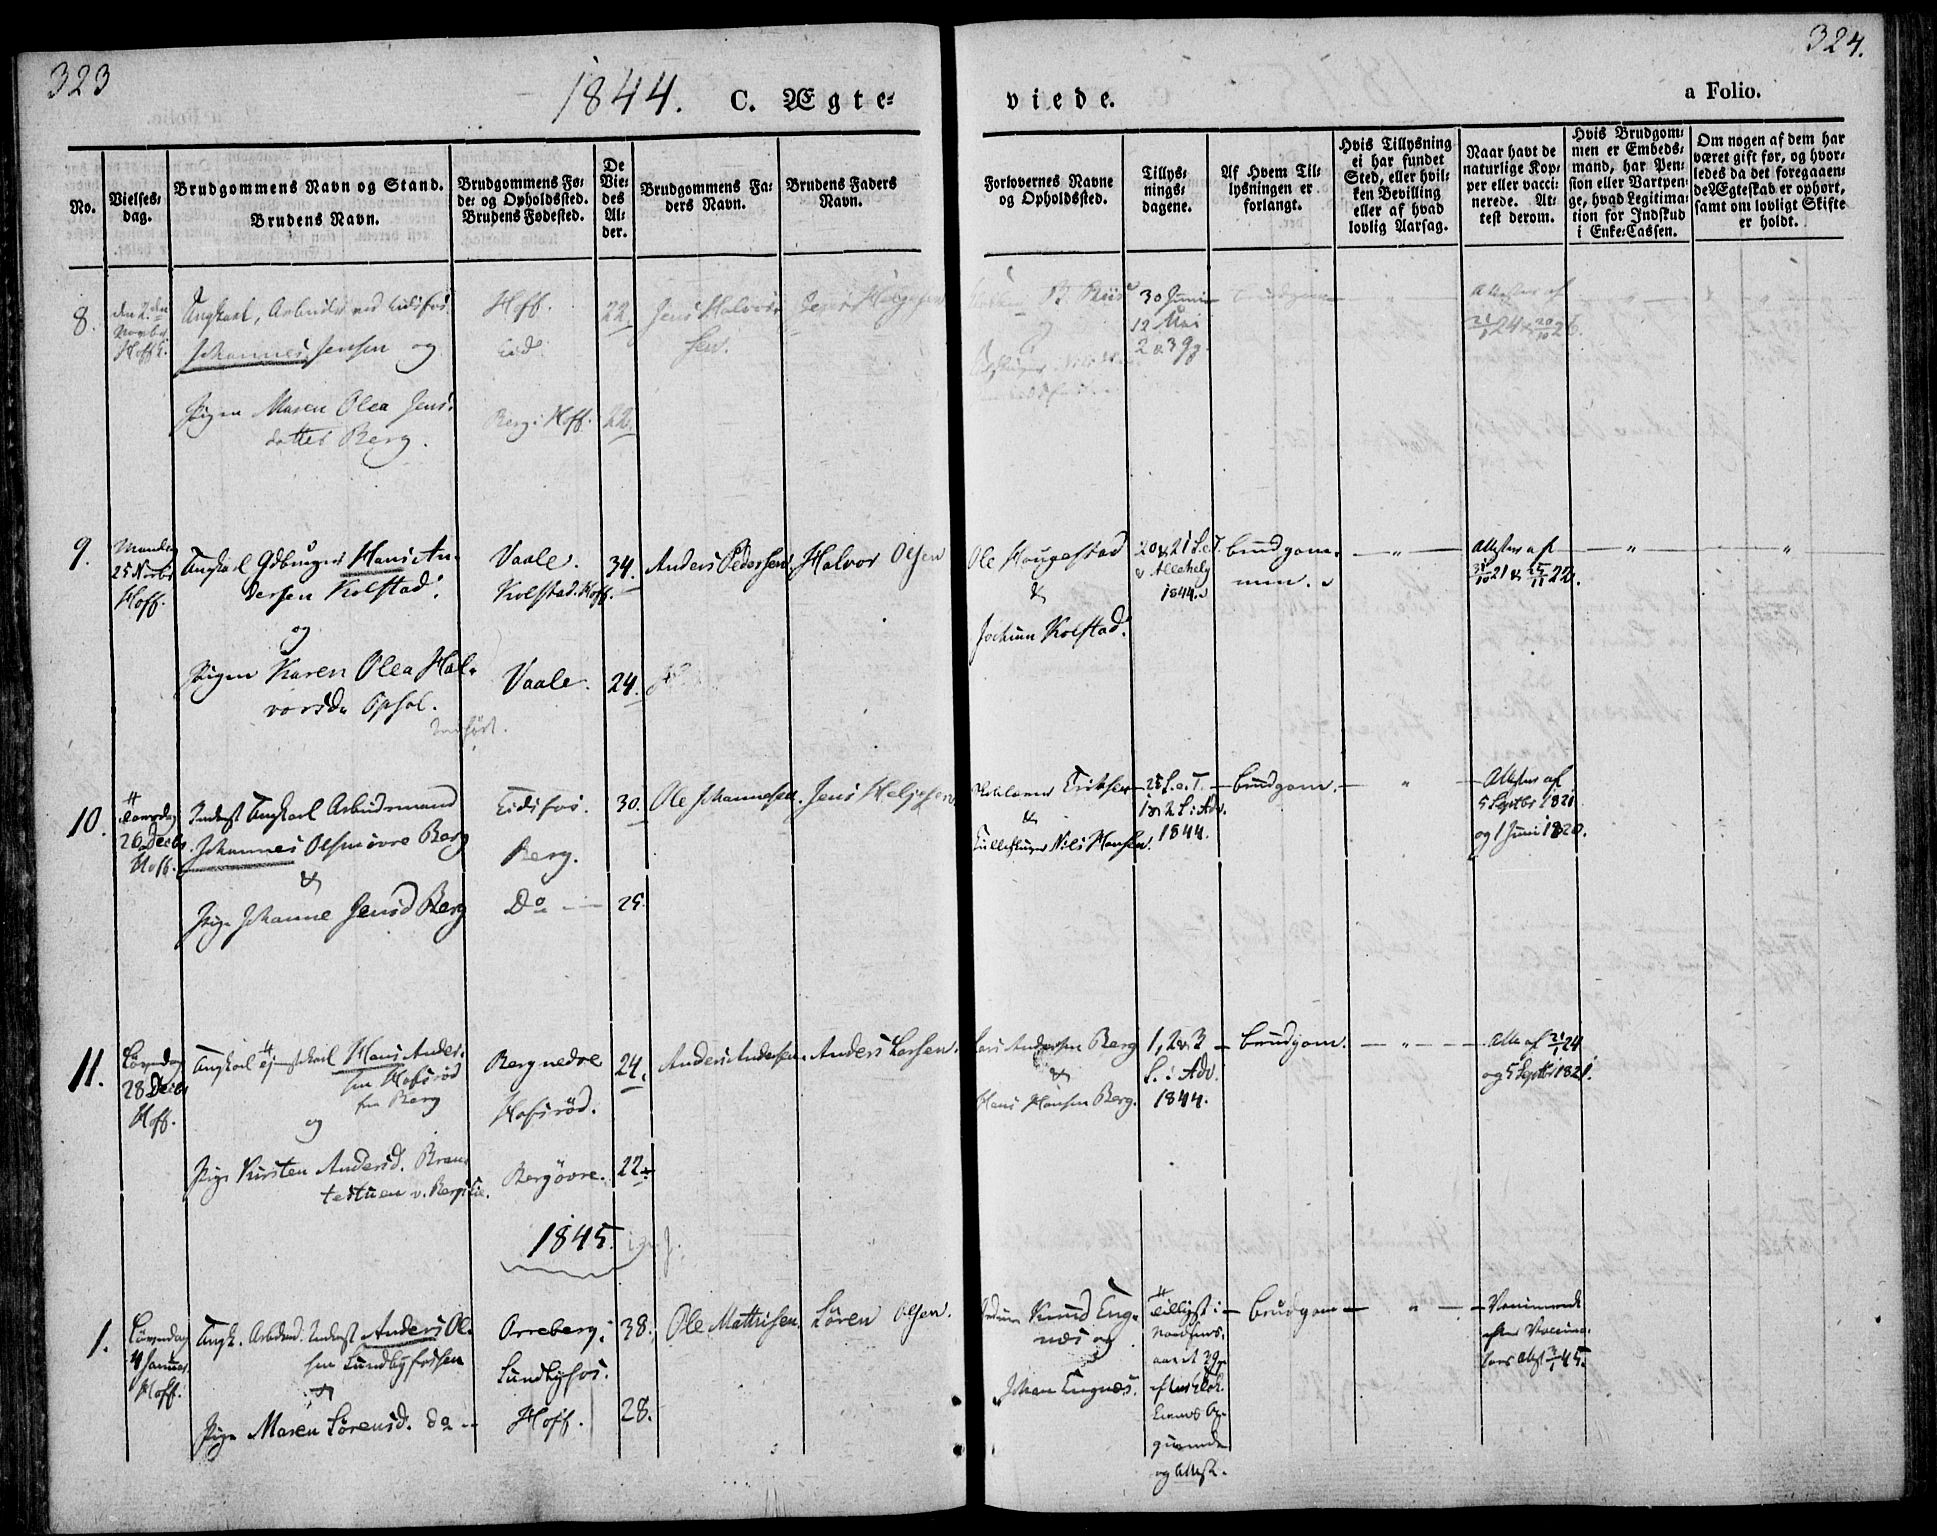 323
1844. C. Ægte-
No.
Vielses-
dag.
Brudgommens Navn og Stand.
Brudens Navn.
Brudgommens Fø-
de- og Opholdssted.
Brudens Fødested.
De
Vie-
des
Al-
der.
Brudgommens Fa-
ders Navn.
Brudens Faders
Navn.
8.
den 2den
Novbr
Hoff K.
Ungkarl, Arbeider ved Eidsfos
Johannes Jensen og
Pigen Maren Olea Jens-
datter Berg.
Hoff.
Eid
Berg i Hoff.
22
22.
Jens Halvor-
sen.
Jens Helgesen
9.
Mandag
25 Novbr
Hoff.
Ungkarl Gdbruger Hans An-
dersen Kolstad.
og
Pigen Karen Olea Hal-
vorsdr Opsal.
indført.
Vaale.
Kolstad. Hoff.
Vaale.
34.
24.
Anders Pedersen.
Halvor Olsen
10.
26 Decbr
Hoff.
Inderst Ungkarl Arbeidsmand
Johannes Olsen øvre Berg
&
Pige Johanne Jensd Berg
Eidsfos.
Berg.
Do
30.
25.
Ole Johannesen.
Jens Helgesen
11.
Løverdag
28 Decbr
Hoff.
Ungkarl Hans Ander-
sen Hofsrød
fra Berg
og
Pige Kirsten Andersd. Bran-
testuen v. Bergseie.
Berg nedre
Hofsrød.
Berg øvre.
24.
22.
Anders Andersen.
Anders Larsen.
1845.
1.
Løverdag
4 Januar
Hoff.
Ungk. Arbdsmd. Inderst Anders Ol-
sen Sundbyfossen
&
Pige Maren Sørensd. do
Orreberg.
Sundbyfos.
Hoff.
38.
28.
Ole Mathisen.
Søren Olsen.
324.
viede.
a Folio.
Forlovernes Navne
og Opholdssted.
Tillys-
nings-
dagene.
Af Hvem Til-
lysningen er
forlangt.
Hvis Tillysning
ei har fundet
Sted, eller hvil-
ken Bevilling
eller af hvad
lovlig Aarsag.
Naar havt de
naturlige Kop-
per eller vacci-
nerede. At-
test derom.
Hvis Brudgom-
men er Embeds-
mand, har Pen-
sion eller Vartpen-
ge, hvad Legitima-
tion for Indskud
i Enke-Cassen.
Om nogen af dem har
været gift før, og hvor-
ledes da det foregaaen-
de Ægteskab er ophørt,
samt om lovligt Skifte
er holdt.
30 Juni
12 Mai
2 a 3 Gg.
Brudgom
Attester af
Ole Hougestad
&
Jochum Kolstad.
20 & 21 S.e.T.
& Allehelg
1844.
Brudgom-
men.
Attester af
31/10 21 & 25/11 22.
Eriksen
&
Nils Hansen.
25 S.e.T.
1 & 2 S. i Adv.
1844.
Brudgom.
Attester af
5 Septbr 1821
og 1 Juni 1820.
Lars Andersen Berg
&
Hans Hansen Berg.
1, 2 & 3
S. i Adv.
1844.
Brudgom.
Att. af 21/1 24
og 5 Septbr 1821.
Knud Eng-
næs og
Johan Engnæs.
Tillyst i
og Attest.
Brudgom
Vaccinerede
efter Vaccina-
tions Attest 3/1 45.